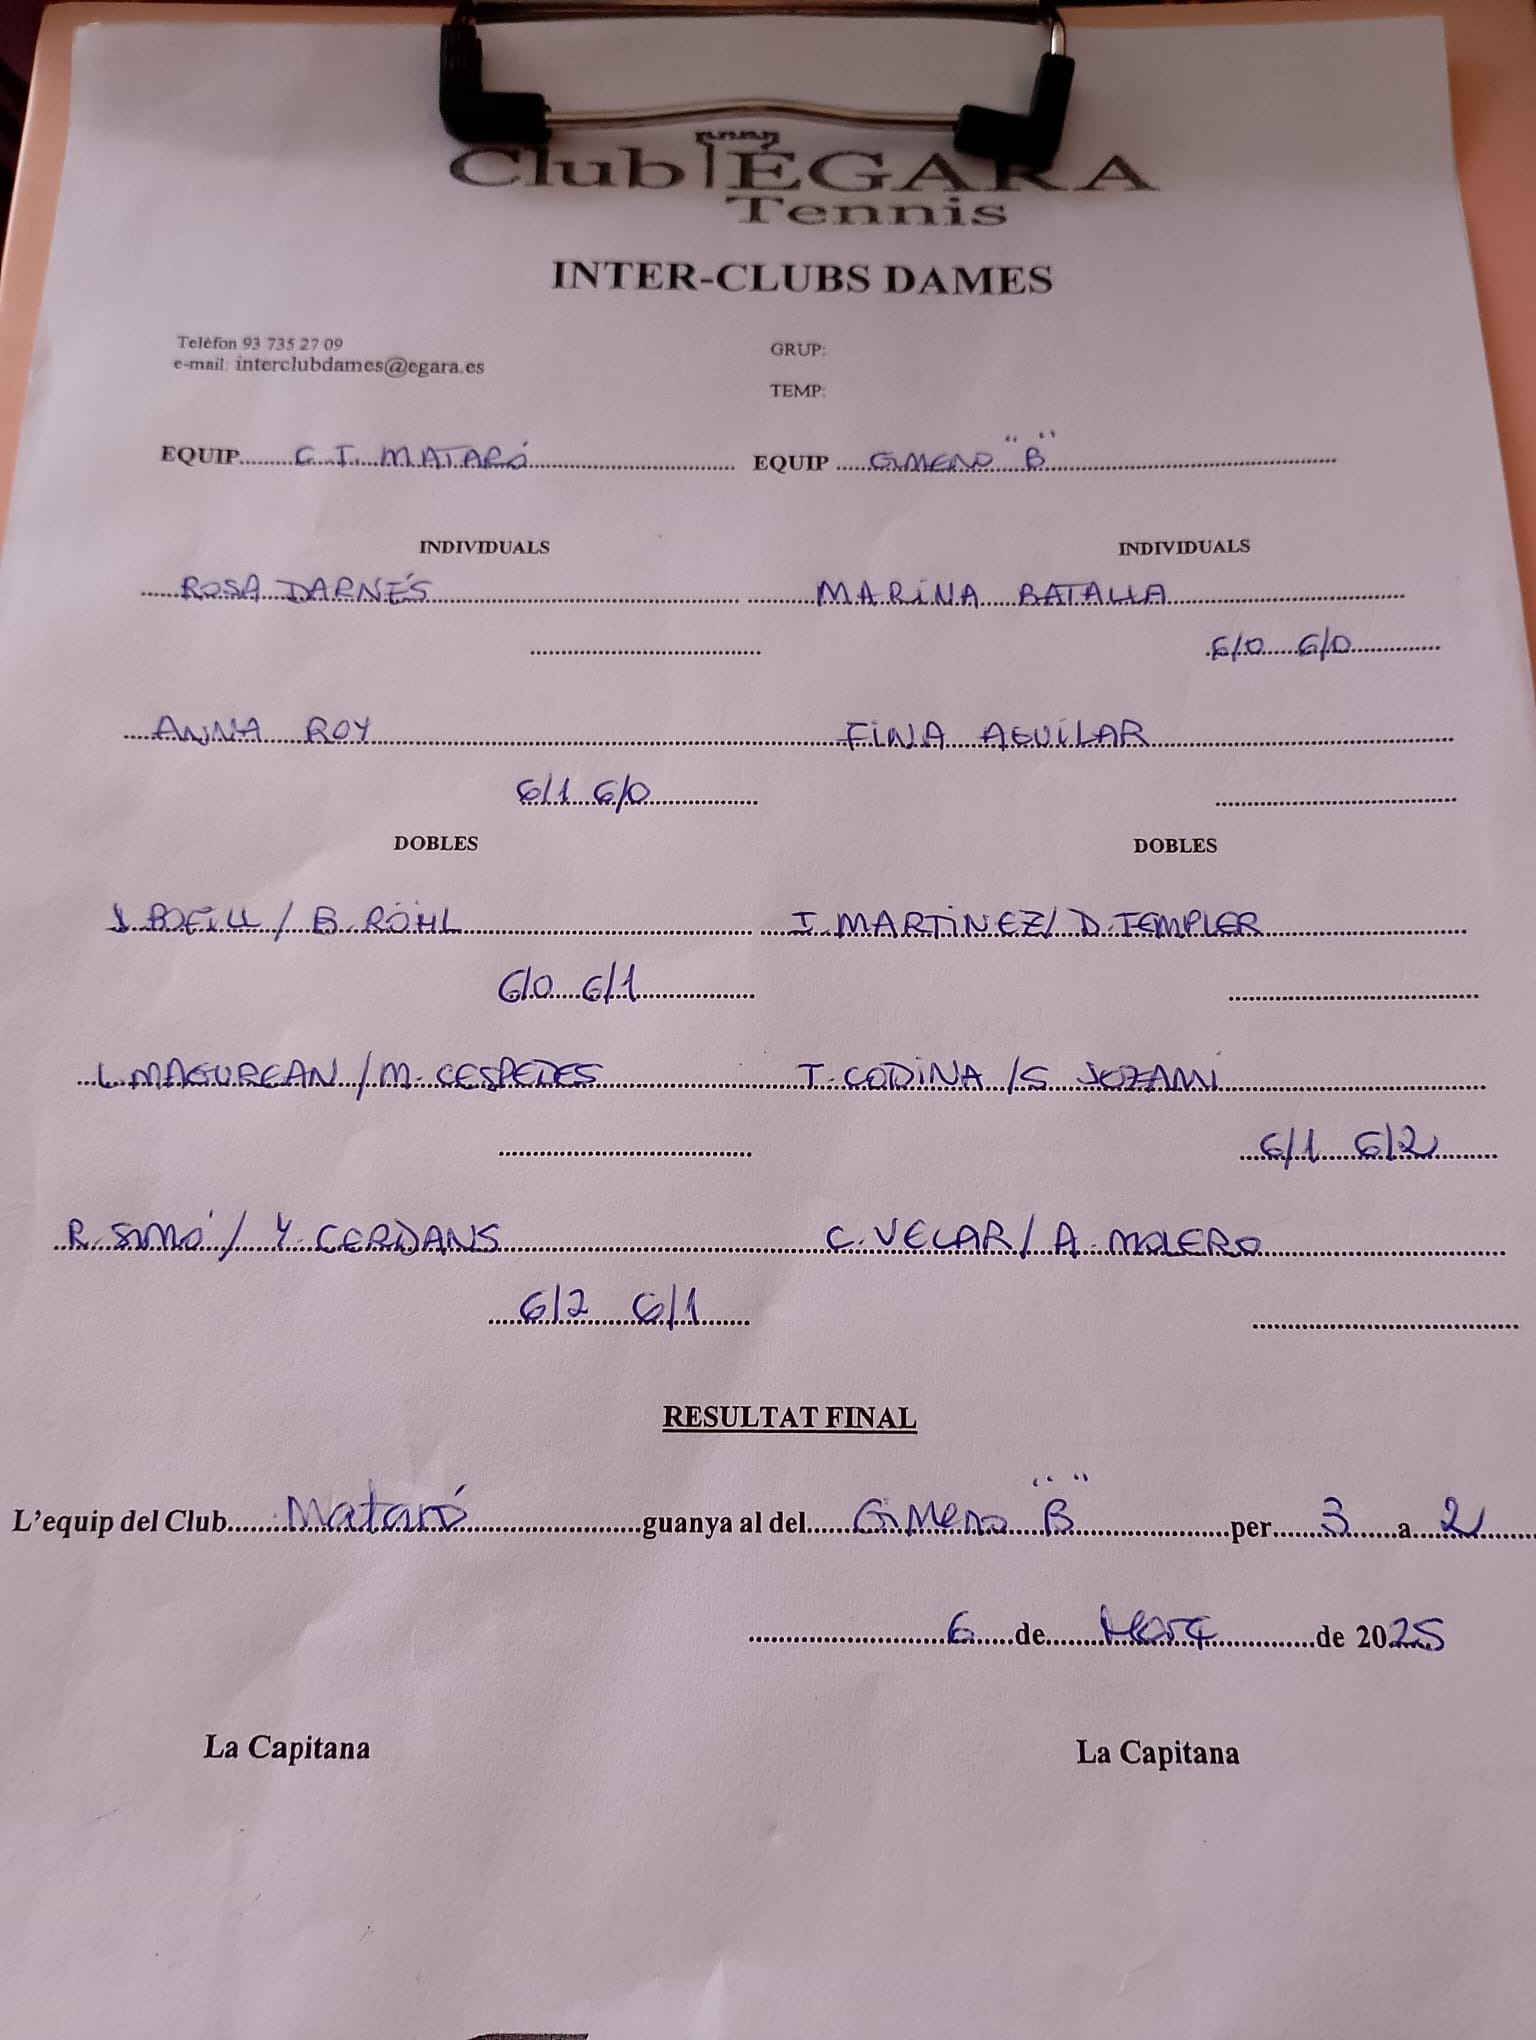 Club ÉGARA
Tennis
INTER-CLUBS DAMES
Telèfon 93 735 27 09
e-mail: interclubdames@egara.es
GRUP:
TEMP:
EQUIP......C.T. MATARÓ...... EQUIP ......GIMENO "B"......
INDIVIDUALS INDIVIDUALS
ROSA DARNÉS MARINA BATALLA
6/0 6/0
ANNA ROY FINA AGUILAR
6/1 6/0
DOBLES DOBLES
J. BOFILL / B. RÖHL I. MARTINEZ / D. TEMPLER
6/0 6/1
L. MAGUREAN / M. CESPEDES T. CODINA / S. JOZAMI
6/1 6/2
R. SIMÓ / Y. CERDANS C. VELAR / A. MOLERO
6/2 6/1
RESULTAT FINAL
L'equip del Club......Mataró......guanya al del......Gimeno "B"......per......3......a......2......
......6......de......Març......de 2025
La Capitana La Capitana